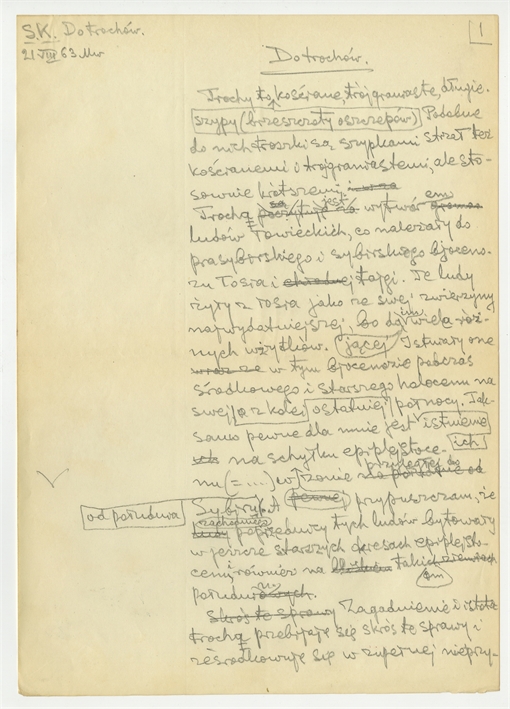 S.K. Do trochów.
21 VIII 63. Mw
1
Do trochów.
Trochy to kościane, trójgraniaste, długie
szypy (brzeszczoty oszczepów). Podobne
do nich troszki są szypkami strzał też
kościanemi i trójgraniastemi, ale sto-
sownie krótszemi.
Trochą są jest wytwór em
ludów łowieckich, co należały do
prasyberskiego i syberskiego bjoceno-
zu łosia i tajgi. Te ludy
żyły z łosia jako ze swej zwierzyny
najwydatniejszej, bo do wielu róż-
nych użytków. jącej Istniały one
w tym bjocenozie podczas
środkowego i starszego holocenu na
swej, a z kolei ostatniej północy. Tak-
samo pewne dla mnie jest istnienie
ich na schyłku epiplejstoce-
nu (= ....) w zonie przyległej do
od południa
Sybiru. A przypuszczam, że
poprzednicy tych ludów bytowały
w jeszcze starszych okresach epiplejsto-
cenu również na takich
południowych.
Skróś tę sprawy Zagadnienie i istota
trochą przebijają się skróś tę sprawy i
ześrodkowuje się w zupełnej nieprzy-